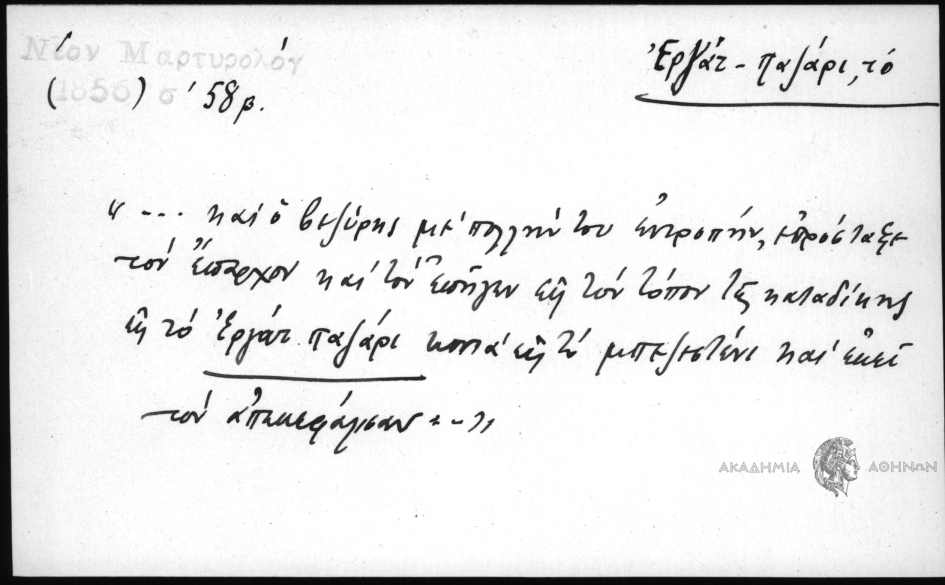 Νέον Μαρτυρολόγ
(1856) σ' 58β.
Ἐργάτ-παζάρι, τό
"... καί ὁ βεζύρης μέ πολλήν του ἐντροπήν, ἐπρόσταξε
τόν ἔπαρχον καί τόν ἐπῆγεν εἰς τόν τόπον τῆς καταδίκης
εἰς τό Ἐργάτ παζάρι κοντά εἰς τό μπεζεστένι καί ἐκεῖ
τόν ἀπεκεφάλισαν..."
ΑΚΑΔΗΜΙΑ ΑΘΗΝΩΝ